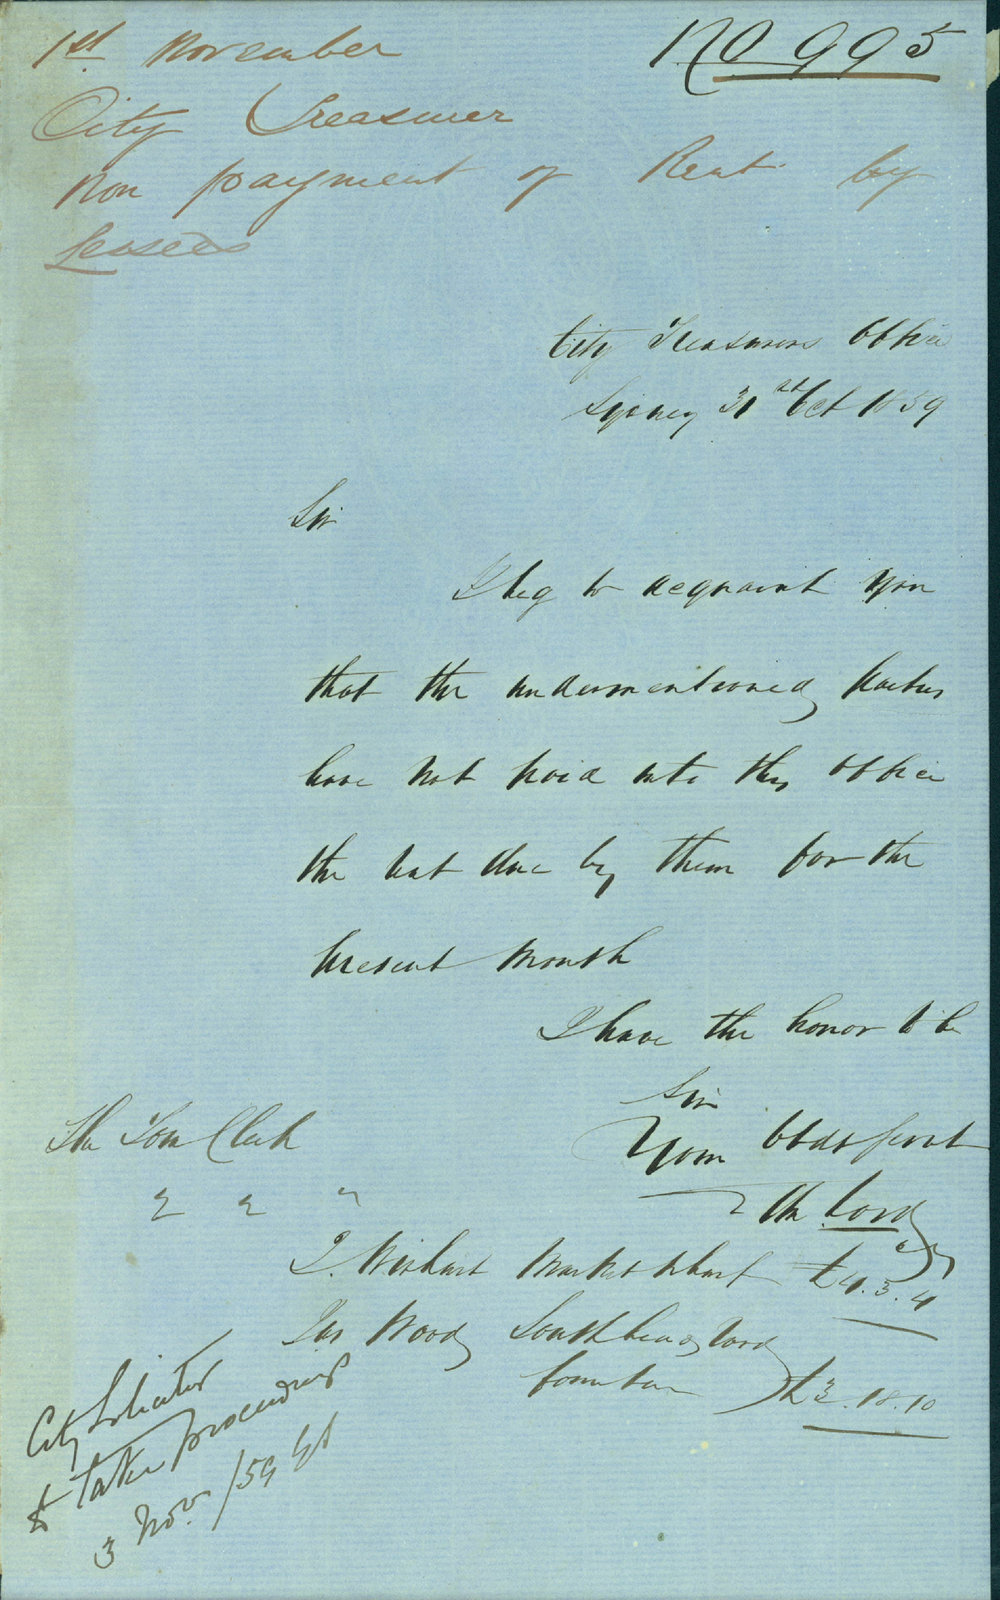 1st November
No 995
City Treasurer
Non payment of Rent by
Leasees
City Treasurers Office
Sydney 31st Oct 1859
Sir
I beg to acquaint you
that the undermentioned parties
have not paid into this office
the rent due by them for the
present month
I have the honor to be
Sir
Your Obdt Servt
The Town Clerk
" " "
J. Wishart Market Wharf £4.3.4
Jas Woods South head road
fountain £3.18.10
City Solicitor
to take proceedings
3 Nov. /59